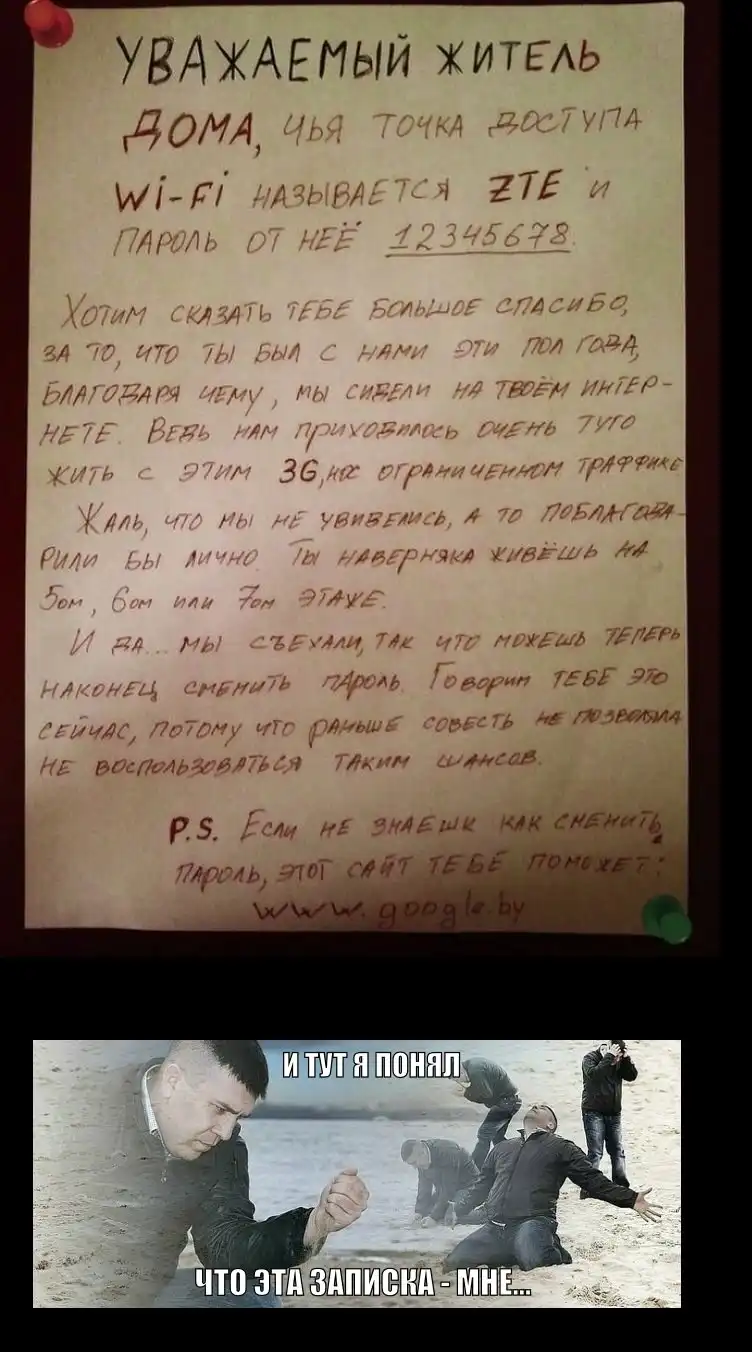 УВАЖАЕМЫЙ ЖИТЕЛЬ
ДОМА, ЧЬЯ ТОЧКА ДОСТУПА
Wi-Fi НАЗЫВАЕТСЯ ZTE И
ПАРОЛЬ ОТ НЕЁ 12345678.
ХОТИМ СКАЗАТЬ ТЕБЕ БОЛЬШОЕ СПАСИБО,
ЗА ТО, ЧТО ТЫ БЫЛ С НАМИ ЭТИ ПОЛ ГОДА,
БЛАГОДАРЯ ЧЕМУ, МЫ СИДЕЛИ НА ТВОЁМ ИНТЕР-
НЕТЕ. ВЕДЬ НАМ ПРИХОДИЛОСЬ ОЧЕНЬ ТУГО
ЖИТЬ С ЭТИМ 3G, ОГРАНИЧЕННОМ ТРАФФИКЕ
ЖАЛЬ, ЧТО МЫ НЕ УВИДЕЛИСЬ, А ТО ПОБЛАГОДА-
РИЛИ БЫ ЛИЧНО. ТЫ НАВЕРНЯКА ЖИВЁШЬ НА
5ом, 6ом или 7ом ЭТАЖЕ.
И ДА... МЫ СЪЕХАЛИ, ТАК ЧТО МОЖЕШЬ ТЕПЕРЬ
НАКОНЕЦ СМЕНИТЬ ПАРОЛЬ. ГОВОРИМ ТЕБЕ ЭТО
СЕЙЧАС, ПОТОМУ ЧТО РАНЬШЕ СОВЕСТЬ НЕ ПОЗВОЛЯЛА
НЕ ВОСПОЛЬЗОВАТЬСЯ ТАКИМ ШАНСОВ.
P.S. ЕСЛИ НЕ ЗНАЕШЬ КАК СМЕНИТЬ
ПАРОЛЬ, ЭТОТ САЙТ ТЕБЕ ПОМОЖЕТ:
www.google.by
И ТУТ Я ПОНЯЛ
ЧТО ЭТА ЗАПИСКА - МНЕ...